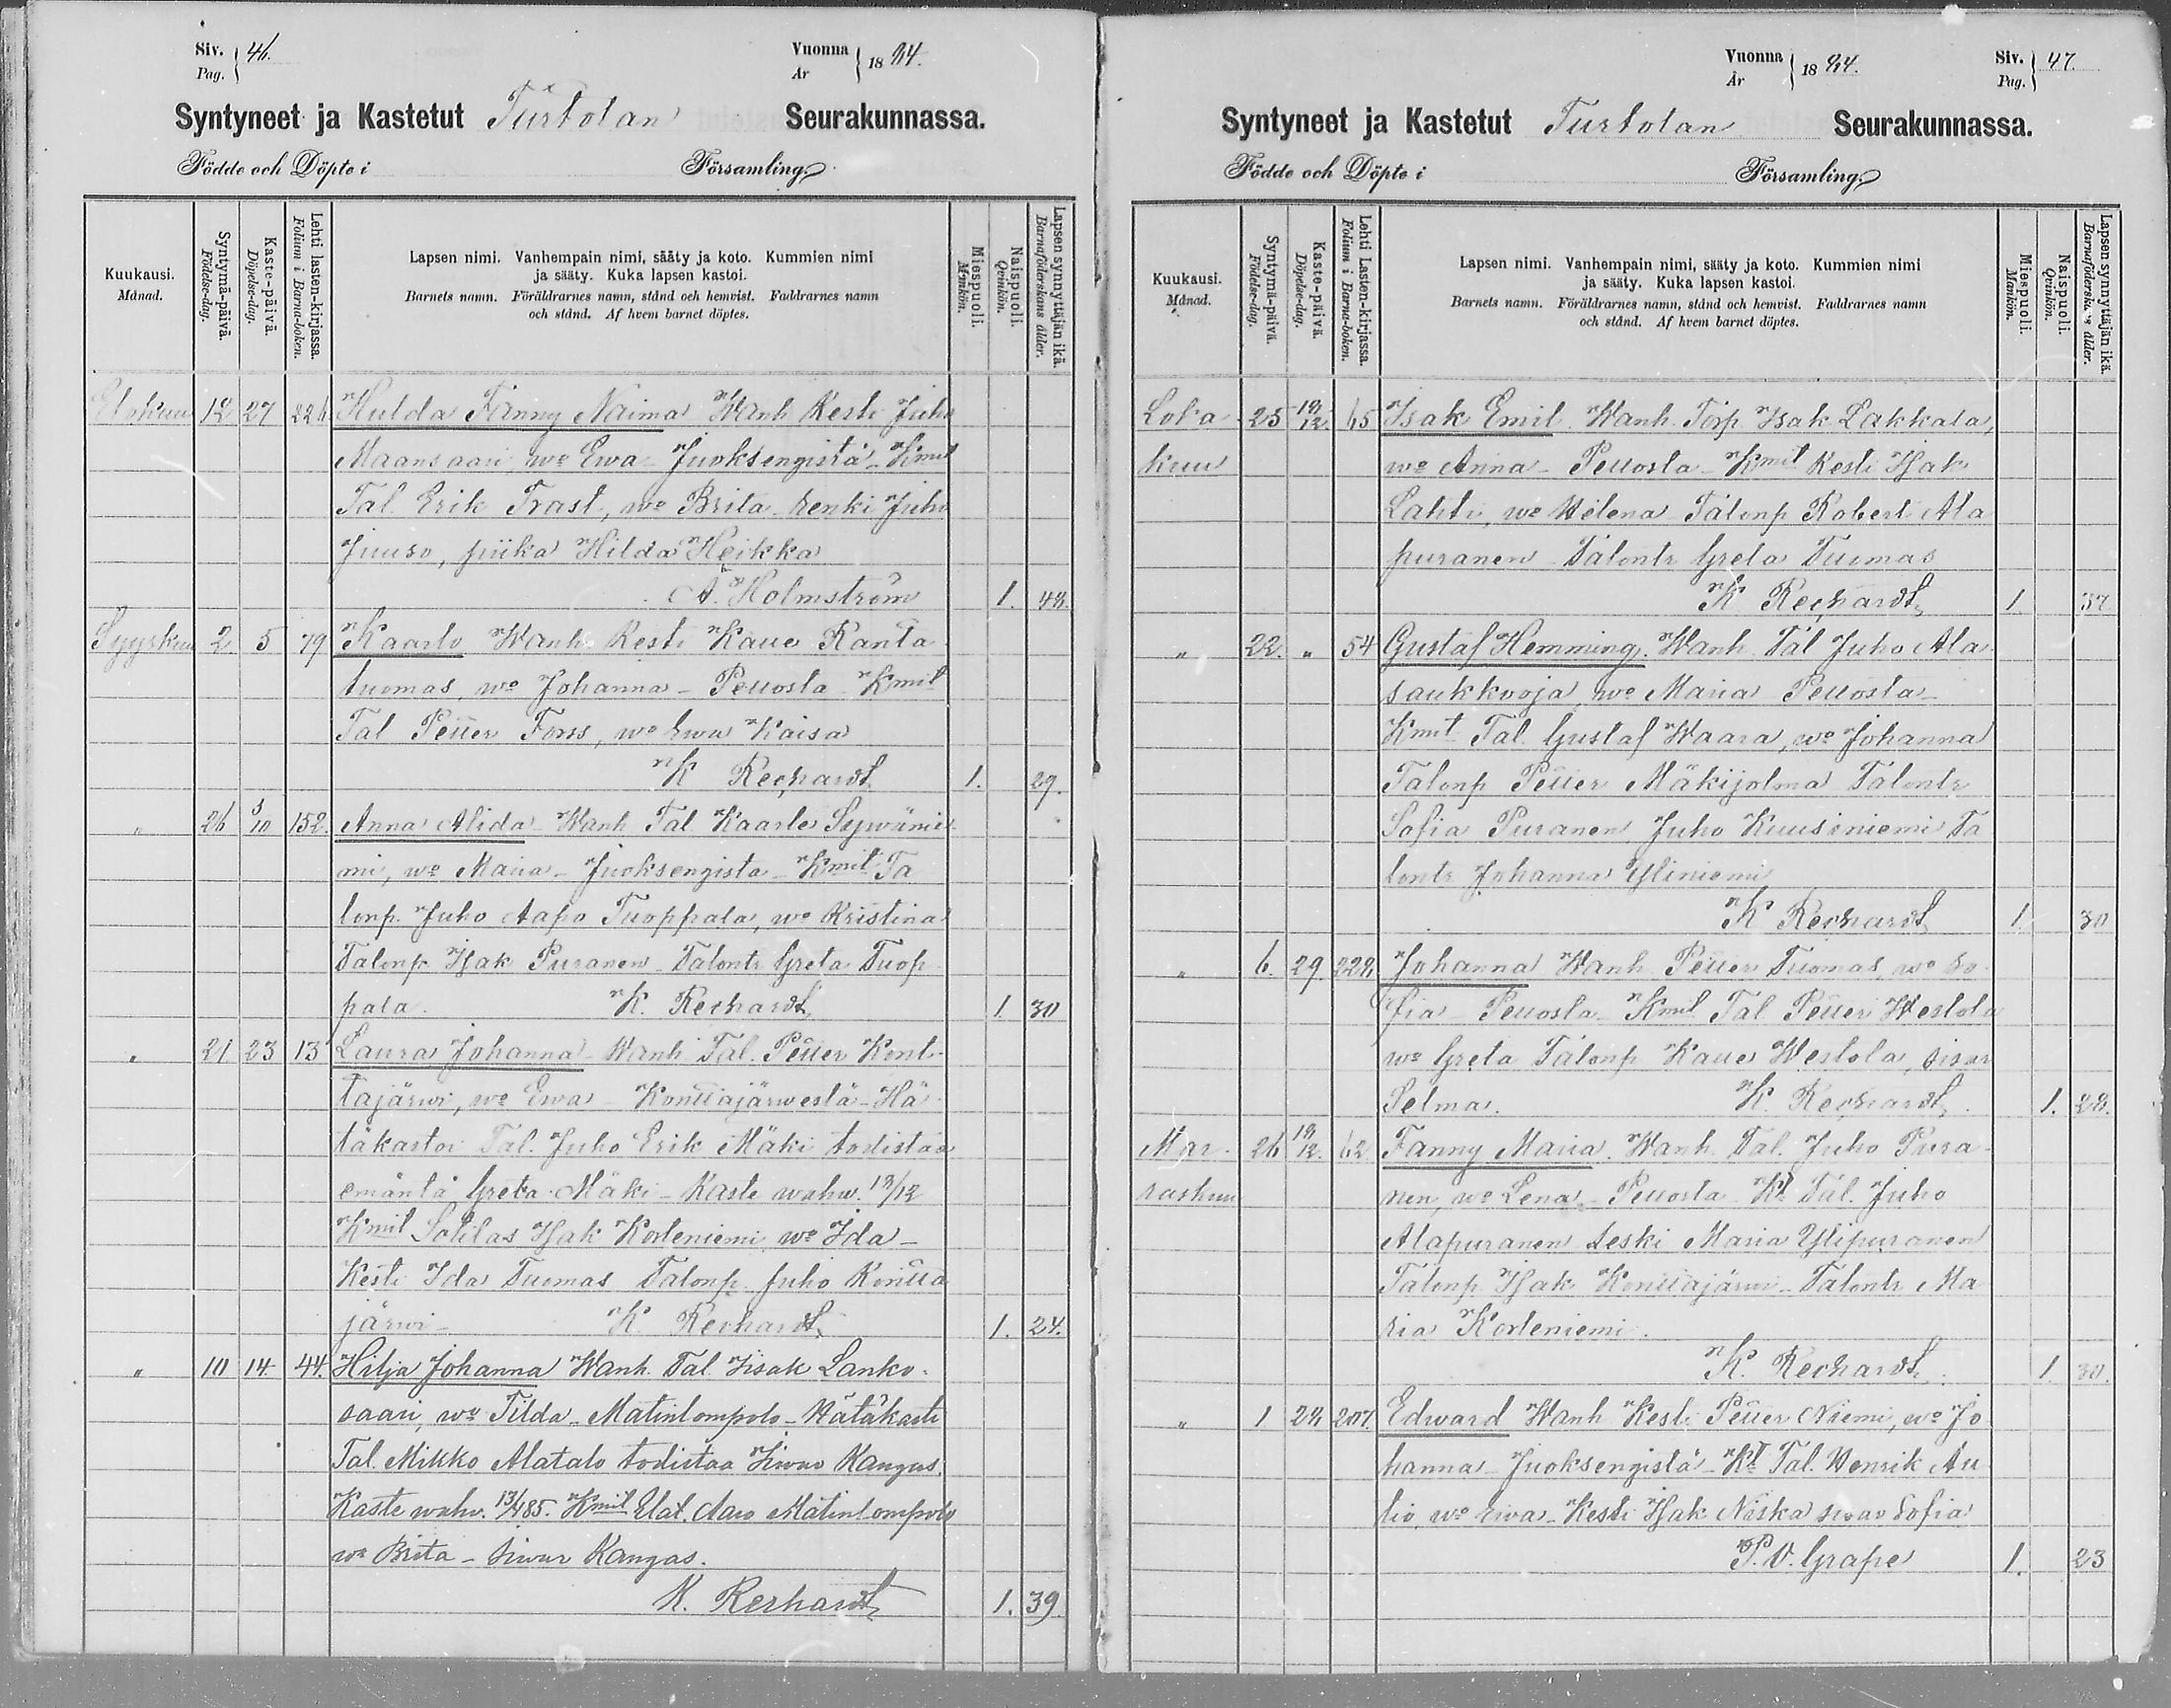 Siv. 46.
Pag.
Vuonna 1884.
År
Syntyneet ja Kastetut Turtolan Seurakunnassa.
Födde och Döpte i Församling.
Kuukausi.
Månad.
Syntymä-päivä.
Födelse-dag.
Kaste-päivä.
Döpelse-dag.
Lehti lasten-kirjassa.
Folium i Barna-boken.
Lapsen nimi. Vanhempain nimi, sääty ja koto. Kummien nimi
ja sääty. Kuka lapsen kastoi.
Barnets namn. Föräldrarnes namn, stånd och hemvist. Faddrarnes namn
och stånd. Af hvem barnet döptes.
Miespuoli.
Mankön.
Naispuoli.
Qvinkön.
Lapsen synnyttäjän ikä.
Barnaföderskans ålder.
Elokuu 12 27 226 Hulda Fanny Naima Wanh Kesti Juho
Maansaari wo Ewa Juoksengistä Kmit
Tal. Erik Trast, wo Brita renki Juho
Juuso, piika Hilda Heikka
A. Holmström 1. 48.
Syyskuu 2 5 79 Kaarlo Wanh Kesti Kalle Ranta
tuomas wo Johanna - Pellosta Kmit
Tal Petter Forss, wo Ewa Kaisa
K Rechardt 1. 29.
" 26 5/10 152. Anna Alida Wanh Tal Kaarle Sywänie
mi, wo Maria - Juoksengista - Kmit Ta
lonp. Juho Aapo Tuoppala, wo Kristina
Talonp Isak Puranen Talontr Greta Tuop
pala. K. Rechardt 1. 30
" 21 23 13 Laura Johanna - Wanh Tal. Petter Kont
tajärwi, wo Ewa - Konttajärwestä - Hä
täkastoi Tal. Juho Erik Mäki todistaa
emäntä Greta Mäki - Kaste wahw. 13/12
Kmit Sotilas Isak Korteniemi wo Ida -
Kesti Ida Tuomas Talonp. Juho Kontta
järwi - K. Rechardt 1. 24.
" 10 14. 44. Hilja Johanna Wanh. Tal Iisak Lanko-
saari, wo Tilda - Matinlompolo - Hätäkasti
Tal. Mikko Alatalo todistaa Hiwar Kangas.
Kaste wahw. 13/1 85. Kmit Tal. Aaro Matinlompolo
wo Brita - Kangas.
K. Rechardt 1. 39.
Vuonna 1884.
År
Siv. 47.
Pag.
Syntyneet ja Kastetut Turtolan Seurakunnassa.
Födde och Döpte i Församling.
Kuukausi.
Månad.
Syntymä-päivä.
Födelse-dag.
Kaste-päivä.
Döpelse-dag.
Lehti Lasten-kirjassa.
Folium i Barna-boken.
Lapsen nimi. Vanhempain nimi, sääty ja koto. Kummien nimi
ja sääty. Kuka lapsen kastoi.
Barnets namn. Föräldrarnes namn, stånd och hemvist. Faddrarnes namn
och stånd. Af hvem barnet döptes.
Miespuoli.
Mankön.
Naispuoli.
Qvinkön.
Lapsen synnyttäjän ikä.
Barnaföderskans ålder.
Loka 25 65 Isak Emil Wanh Torp Isak Lakkala,
kuu wo Anna - Pellosta - Kmit Kesti Isak
Lahti, wo Helena Talonp Robert Ala
puranen Talontr Greta Tuomas
K Rechardt 1. 37
" 22. " 54 Gustaf Hemming. Wanh. Tal Juho Ala
saukkooja wo Maria Pellosta -
Kmit Tal Gustaf Waara, wo Johanna
Talonp Petter Mäkijolma Talontr
Sofia Puranen Juho Kuusiniemi Ta
lontr Johanna Yliniemi
K Rechardt 1. 30
" 6. 29. 228 Johanna Wanh Petter Tuomas, wo So
fia - Pellosta Kmit Tal Petter Westola
wo Greta Talonp Kalle Westola, sisar
Selma. K. Rechardt 1. 28.
Mar- 26 62 Fanny Maria. Wanh. Tal. Juho Pura
raskuu nen, wo Lena Pellosta Kt Tal. Juho
Alapuranen Leski Maria Ylipuranen
Talonp Isak Konttajärwi - Talontr Ma
ria Korteniemi.
K. Rechardt 1. 30.
" 1 207. Edward Wanh Kesti Petter Niemi, wo Jo
hanna - Juoksengistä - Kt Tal. Henrik Au
tio, wo Ewa - Kesti Isak Niska sisar Sofia
P. V. Grape 1. 23